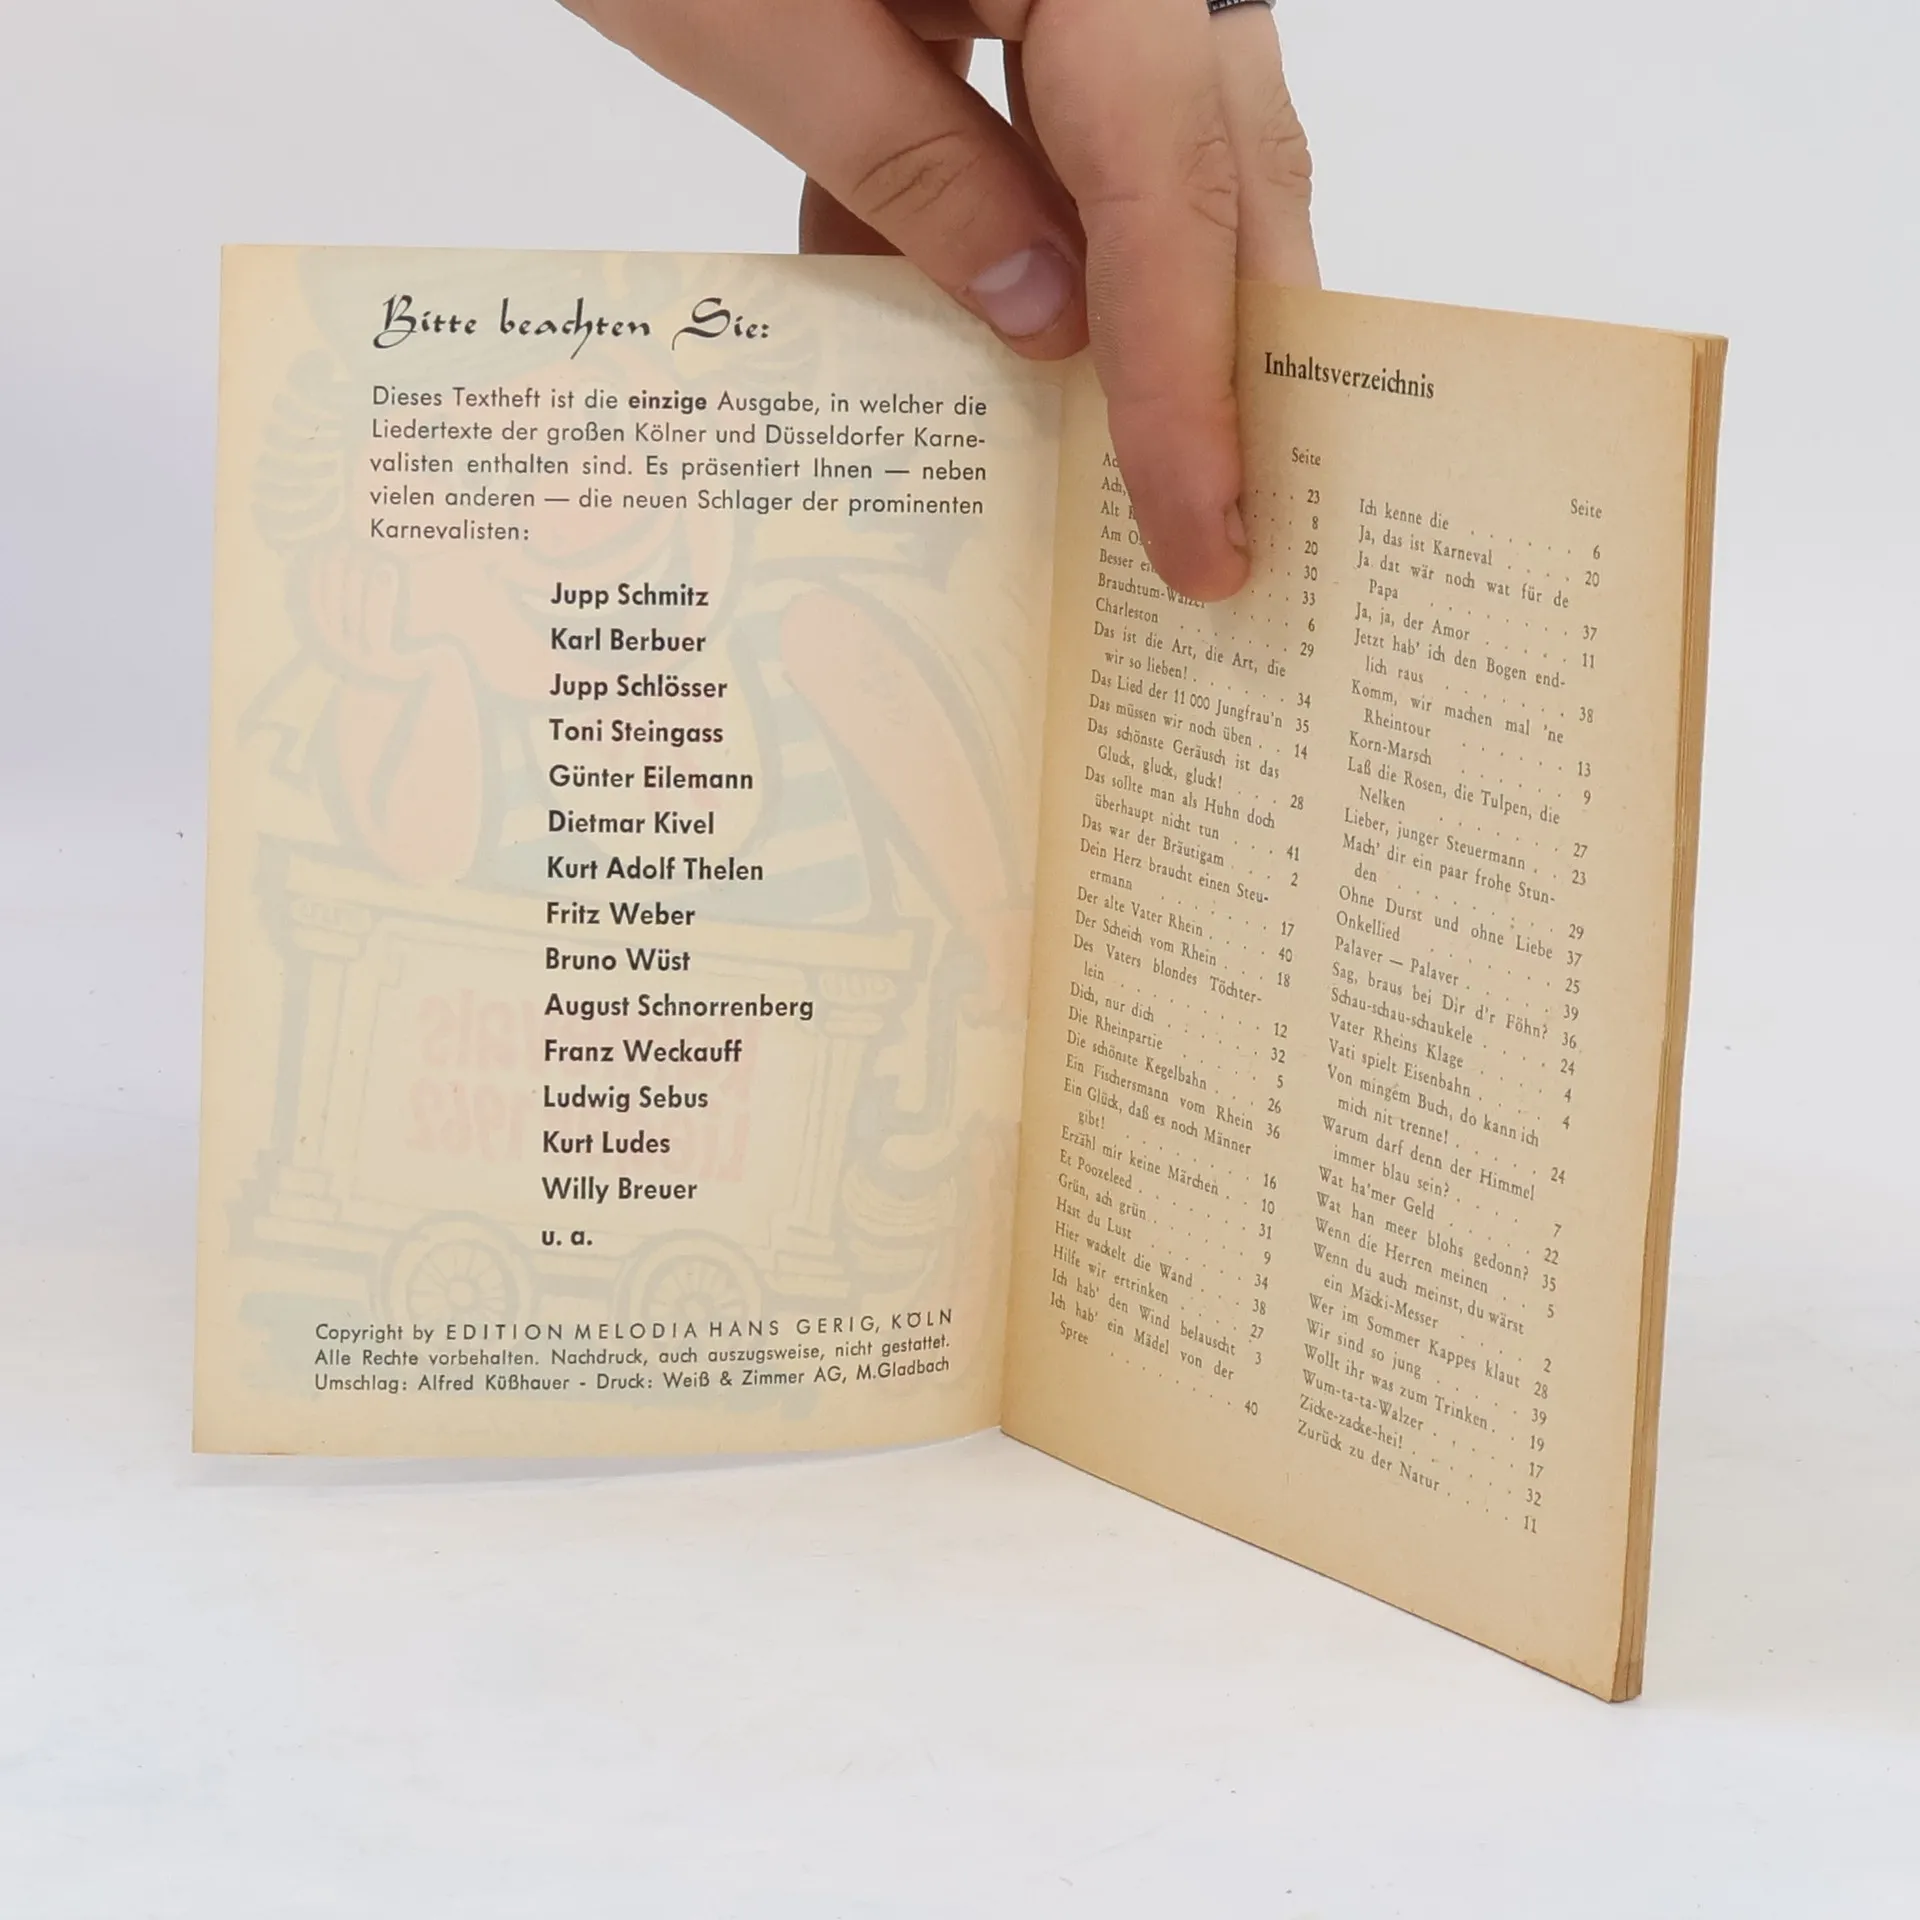 Bitte beachten Sie:
Dieses Textheft ist die einzige Ausgabe, in welcher die
Liedertexte der großen Kölner und Düsseldorfer Karne-
valisten enthalten sind. Es präsentiert Ihnen — neben
vielen anderen — die neuen Schlager der prominenten
Karnevalisten:
Jupp Schmitz
Karl Berbuer
Jupp Schlösser
Toni Steingass
Günter Eilemann
Dietmar Kivel
Kurt Adolf Thelen
Fritz Weber
Bruno Wüst
August Schnorrenberg
Franz Weckauff
Ludwig Sebus
Kurt Ludes
Willy Breuer
u. a.
Copyright by EDITION MELODIA HANS GERIG, KÖLN
Alle Rechte vorbehalten. Nachdruck, auch auszugsweise, nicht gestattet.
Umschlag: Alfred Küßhauer - Druck: Weiß & Zimmer AG, M.Gladbach
Inhaltsverzeichnis
Seite
. . 23
Ach, . . 8
Alt . . . 20
Am . . 30
Besser . . . 33
Brauchtum-Walzer . . . 6
Charleston . . . . . . 29
Das ist die Art, die Art, die
wir so lieben! . . . . . . 34
Das Lied der 11 000 Jungfrau'n 35
Das müssen wir noch üben . . 14
Das schönste Geräusch ist das
Gluck, gluck, gluck! . . . 28
Das sollte man als Huhn doch
überhaupt nicht tun . . . 41
Das war der Bräutigam . . . 2
Dein Herz braucht einen Steu-
ermann . . . . . . . 17
Der alte Vater Rhein . . . . 40
Der Scheich vom Rhein . . . 18
Des Vaters blondes Töchter-
lein . . . . . . . . 12
Dich, nur dich . . . . . . 32
Die Rheinpartie . . . . . 5
Die schönste Kegelbahn . . . 26
Ein Fischersmann vom Rhein 36
Ein Glück, daß es noch Männer
gibt! . . . . . . . . 16
Erzähl mir keine Märchen . . 10
Et Poozeleed . . . . . . 31
Grün, ach grün . . . . . . 9
Hast du Lust . . . . . . 34
Hier wackelt die Wand . . . 38
Hilfe wir ertrinken . . . . 27
Ich hab' den Wind belauscht 3
Ich hab' ein Mädel von der
Spree . . . . . . . 40
Seite
Ich kenne die . . . . . . 6
Ja, das ist Karneval . . . . 20
Ja dat wär noch wat für de
Papa . . . . . . . 37
Ja, ja, der Amor . . . . . 11
Jetzt hab' ich den Bogen end-
lich raus . . . . . . . 38
Komm, wir machen mal 'ne
Rheintour . . . . . . 13
Korn-Marsch . . . . . . 9
Laß die Rosen, die Tulpen, die
Nelken . . . . . . . 27
Lieber, junger Steuermann . . 23
Mach' dir ein paar frohe Stun-
den . . . . . . . . 29
Ohne Durst und ohne Liebe 37
Onkellied . . . . . . 25
Palaver — Palaver . . . . . 39
Sag, braus bei Dir d'r Föhn? 36
Schau-schau-schaukele . . . . 24
Vater Rheins Klage . . . . 4
Vati spielt Eisenbahn . . . . 4
Von mingem Buch, do kann ich
mich nit trenne! . . . . . 24
Warum darf denn der Himmel
immer blau sein? . . . . 7
Wat ha'mer Geld . . . . . 22
Wat han meer blohs gedonn? 35
Wenn die Herren meinen . . 5
Wenn du auch meinst, du wärst
ein Mäcki-Messer . . . . 2
Wer im Sommer Kappes klaut 28
Wir sind so jung . . . . . 39
Wollt ihr was zum Trinken . . 19
Wum-ta-ta-Walzer . . . . . 17
Zicke-zacke-hei! . . . . . 32
Zurück zu der Natur . . . . 11